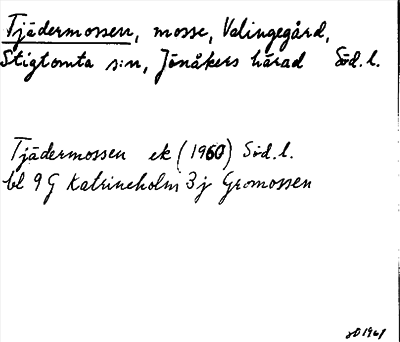 Tjädermossen, mosse, Valingegård,
Stigtomta s:n, Jönåkers härad Söd.l.
Tjädermossen ek (1960) Söd.l.
bl 9G Katrineholm 3j Gromossen
1961